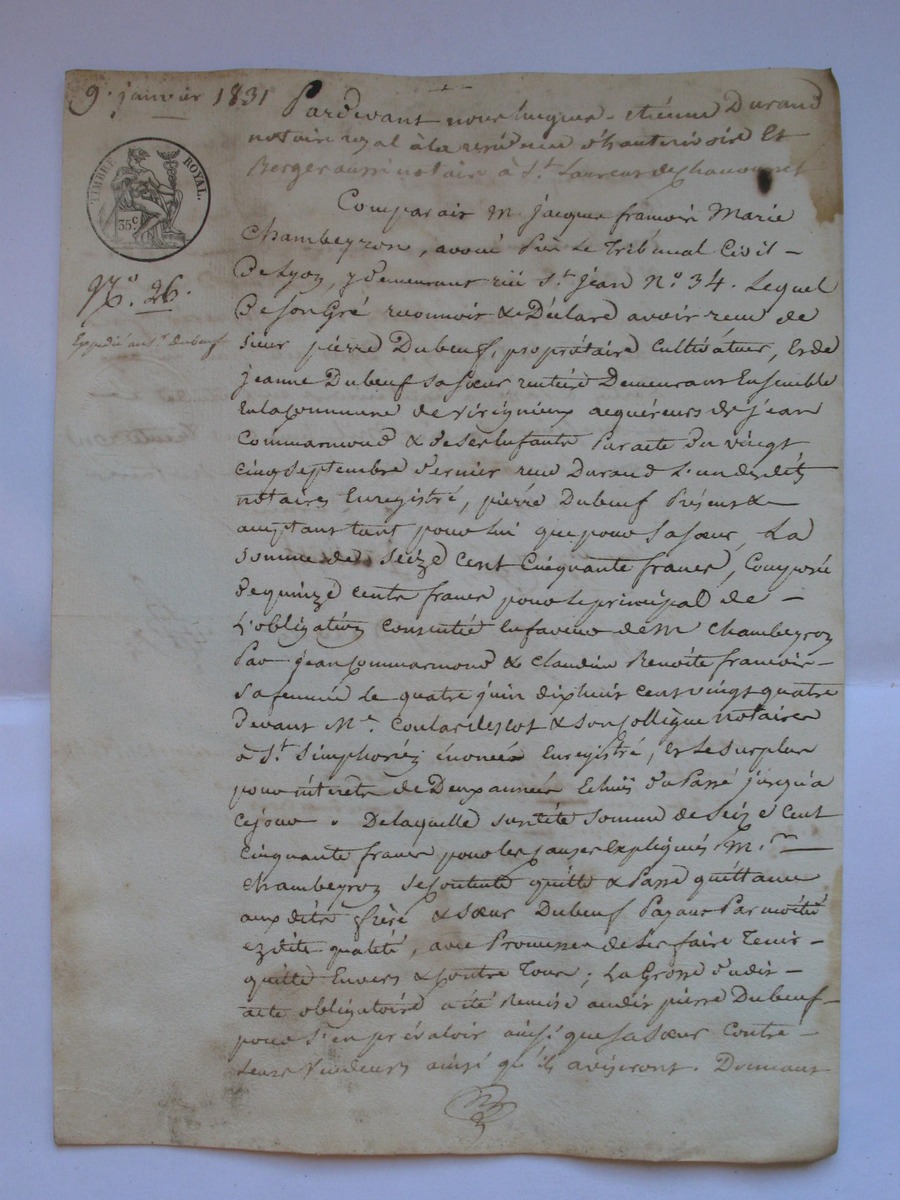 9. janvier 1831
Pardevant nous hugues-étienne Durand
notaire royal à la résidence d'hauterivoire Et
Berger aussi notaire à St. Laurent de Chamousset
TIMBRE ROYAL.
35c
No. 26.
Expédié au Sr. dubeuf
Comparait M jacques francois Marie
Chambeyron, avoué Près Le Tribunal Civil
De Lyon, y demeurant rüe St. jean No. 34. Lequel
De son Gré reconnoit & Déclare avoir recu de
sieur pierre Dubeuf, propriétaire cultivateur, Et de
jeanne Dubeuf sa sœur rentière Demeurant Ensemble
En la Commune de virigneux acquéreurs de jean
Commarmond & de ses Enfants Par acte du vingt
cinq septembre dernier recu Durand L'un desdits
notaires Enregistré, pierre Dubeuf Présent &
acceptant tant pour lui que pour sa sœur, La
somme de seize cent Cinquante francs, Composée
de quinze cents francs pour le principal de
L'obligation consentie En faveur de M Chambeyron
Par jean Commarmond & Claudine Benoite francois
sa femme le quatre juin dix huit cent vingt quatre
devant Me. & son Collègue notaires
à St. Simphorien Enregistré, Et Le surplus
pour intérets de Deux années Echus du Passé jusqu'a
ce jour. De laquelle susdite somme de seize Cent
cinquante francs pour les causes Expliquées M.
Chambeyron se contente quitte & Passe quittance
aux dits frère & sœur Dubeuf Payant Par moitié
ezdite qualité, avec Promesse de les faire Tenir
quitte Envers & contre Tous; La Grosse dudit
acte obligatoire a été Remise audit pierre Dubeuf
pour s'en prévaloir ainsi que sa sœur Contre
Leurs Vendeurs ainsi qu'ils aviseront.